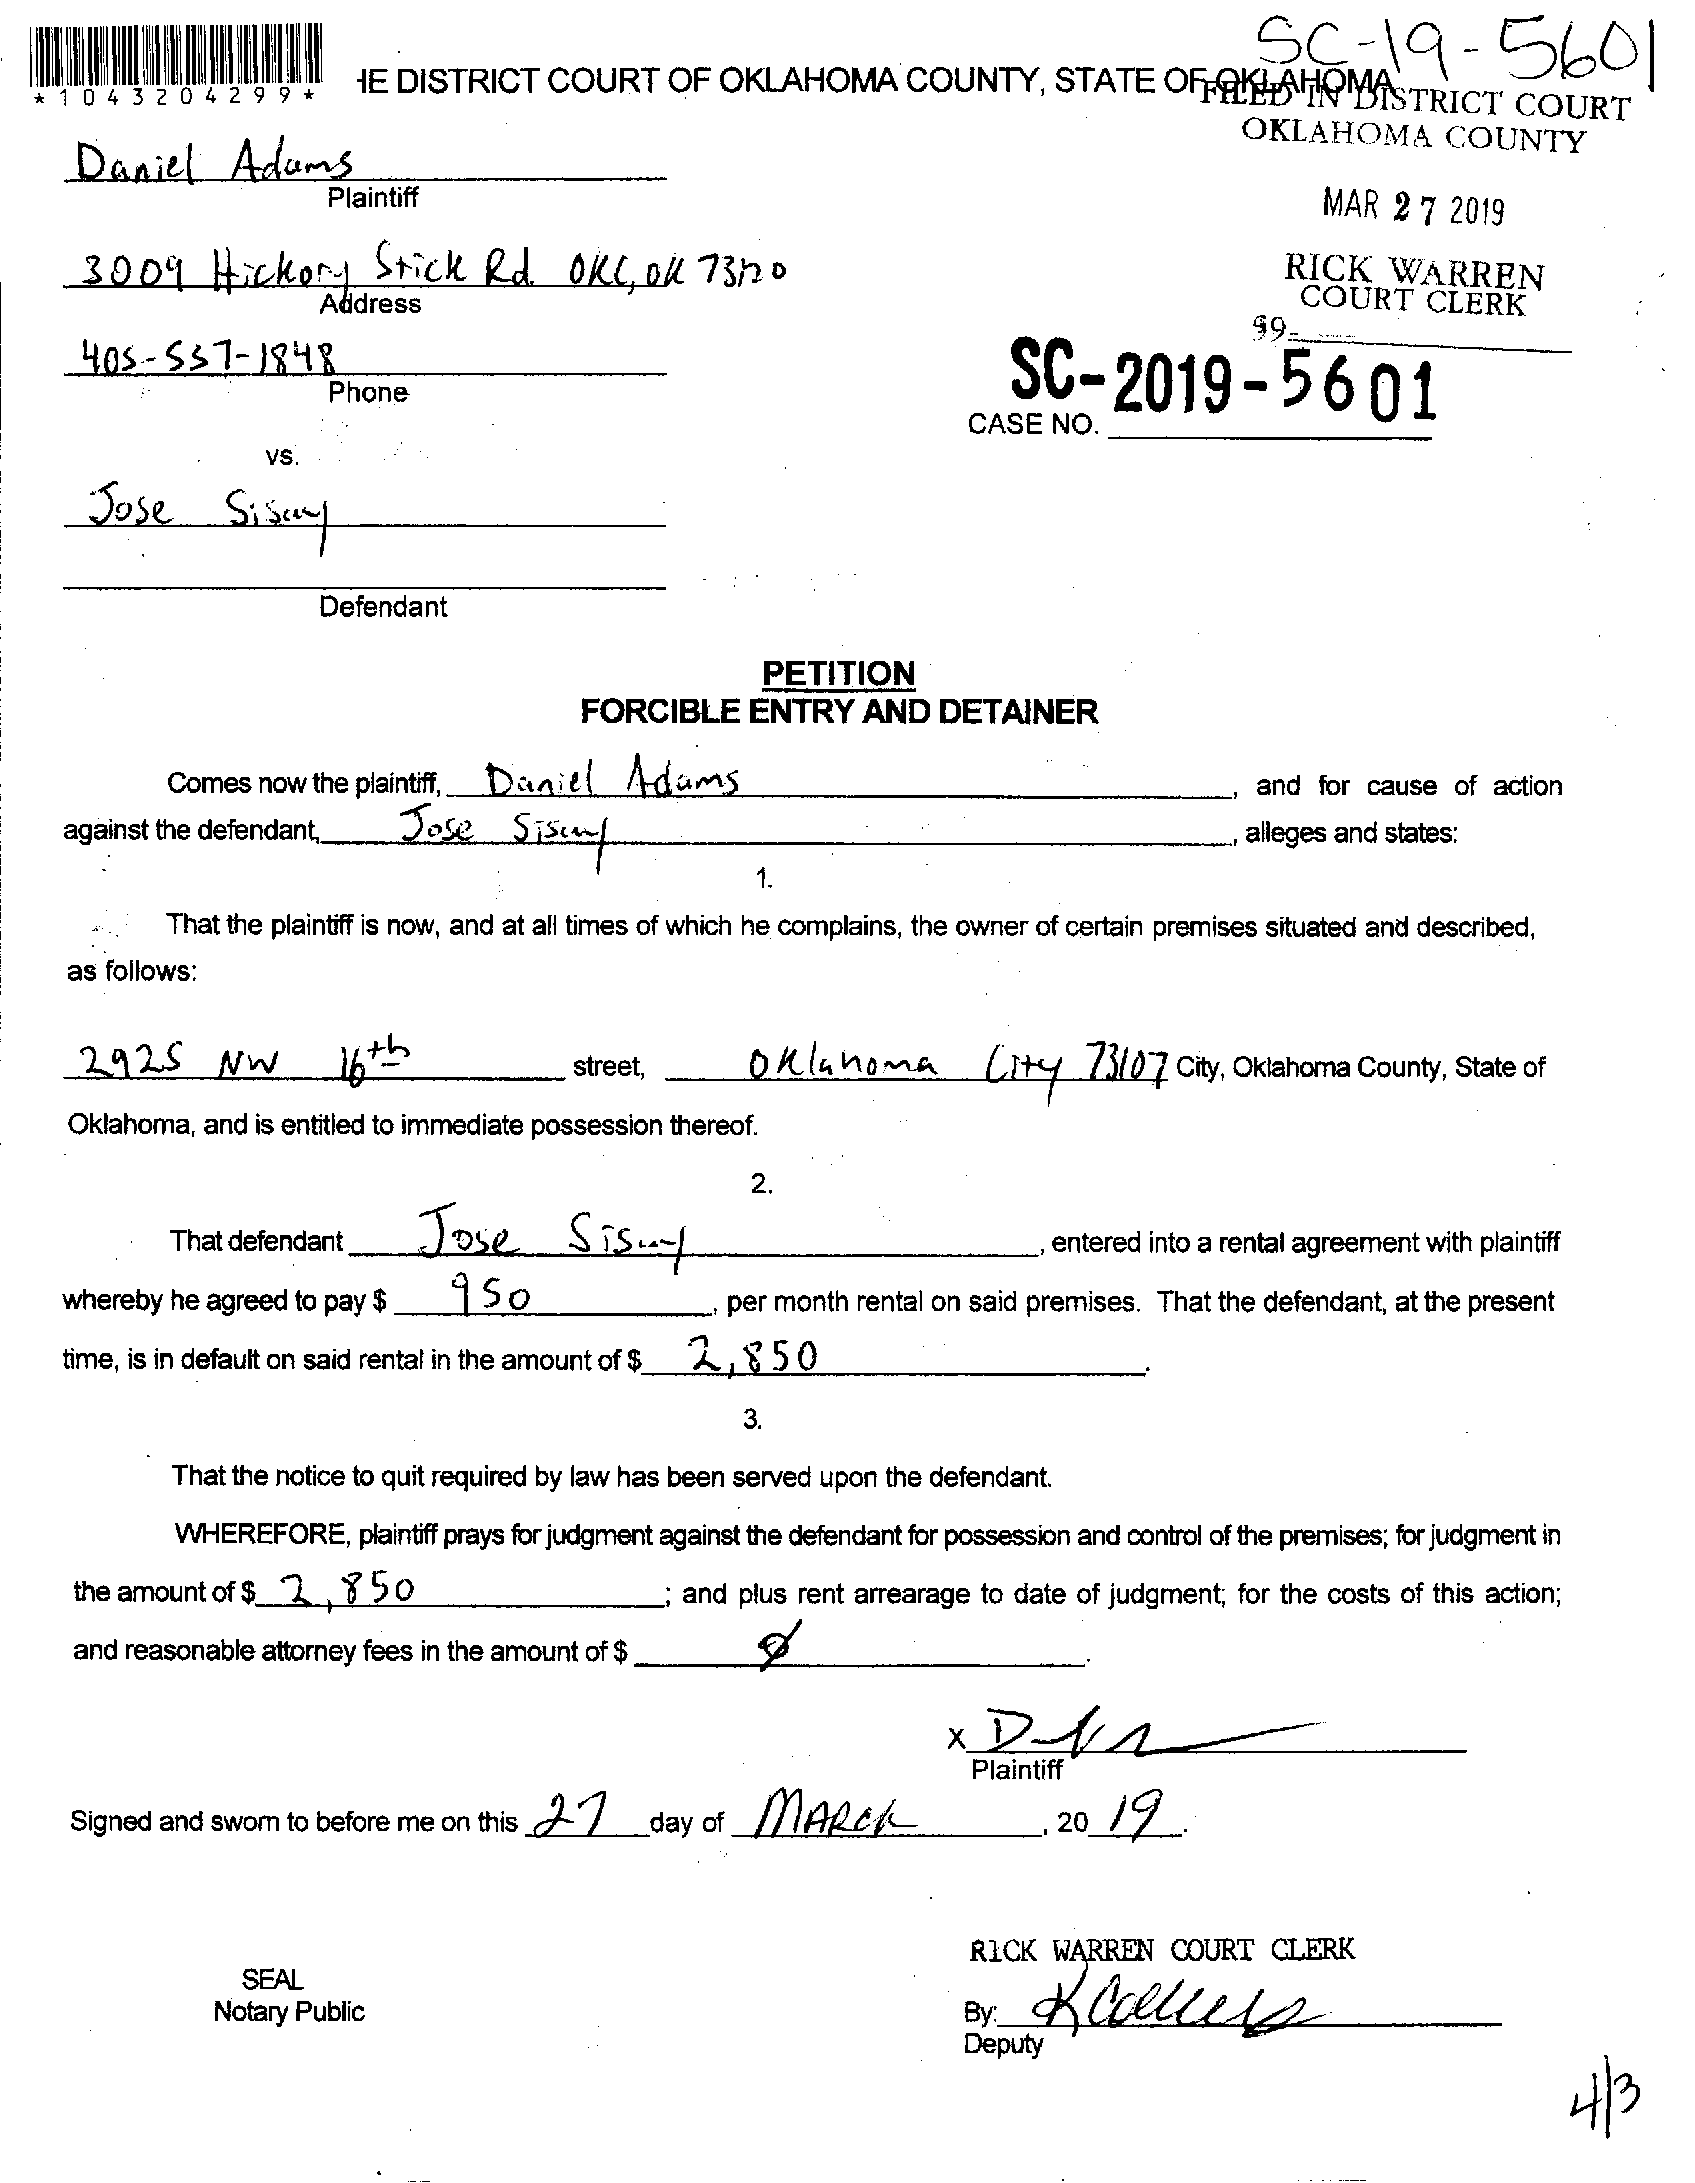 SC-19-5601
*1043204299*
HE DISTRICT COURT OF OKLAHOMA COUNTY, STATE OF OKLAHOMA
FILED IN DISTRICT COURT
OKLAHOMA COUNTY
Daniel Adams
Plaintiff
MAR 27 2019
3009 Hickory Stick Rd. OKC, OK 73120
Address
RICK WARREN
COURT CLERK
99
405-557-1848
Phone
SC-2019-5601
CASE NO.
vs.
Jose
Defendant
PETITION
FORCIBLE ENTRY AND DETAINER
Comes now the plaintiff, Daniel Adams, and for cause of action
against the defendant, Jose, alleges and states:
1.
That the plaintiff is now, and at all times of which he complains, the owner of certain premises situated and described,
as follows:
2925 NW 16th street, Oklahoma City 73107 City, Oklahoma County, State of
Oklahoma, and is entitled to immediate possession thereof.
2.
That defendant Jose, entered into a rental agreement with plaintiff
whereby he agreed to pay $ 950, per month rental on said premises. That the defendant, at the present
time, is in default on said rental in the amount of $ 2,850.
3.
That the notice to quit required by law has been served upon the defendant.
WHEREFORE, plaintiff prays for judgment against the defendant for possession and control of the premises; for judgment in
the amount of $ 2,850; and plus rent arrearage to date of judgment; for the costs of this action;
and reasonable attorney fees in the amount of $ Ø.
X
Plaintiff
Signed and sworn to before me on this 27 day of MARCH, 20 19.
RICK WARREN COURT CLERK
SEAL
Notary Public
By:
Deputy
4/3